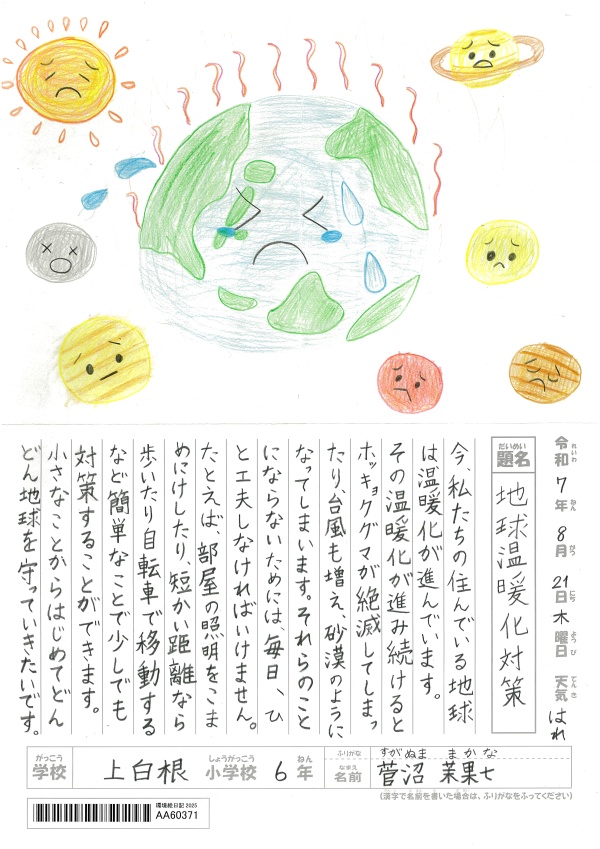 令和7年8月21日木曜日 天気 はれ
れいわ ねん がつ にち ようび てんき
だいめい
題名 地球温暖化対策
今、私たちの住んでいる地球
は温暖化が進んでいます。
その温暖化が進み続けると
ホッキョクグマが絶滅してしまっ
たり、台風も増え、砂漠のように
なってしまいます。それらのこと
にならないためには、毎日、ひ
と工夫しなければいけません。
たとえば、部屋の照明をこま
めにけしたり、短かい距離なら
歩いたり自転車で移動する
など簡単なことで少しでも
対策することができます。
小さなことからはじめてどん
どん地球を守っていきたいです。
がっこう しょうがっこう ねん
学校 上白根 小学校 6年
ふりがな すがぬま まかな
なまえ
名前 菅沼 茉果七
(漢字で名前を書いた場合は、ふりがなをふってください)
環境絵日記 2025
AA60371